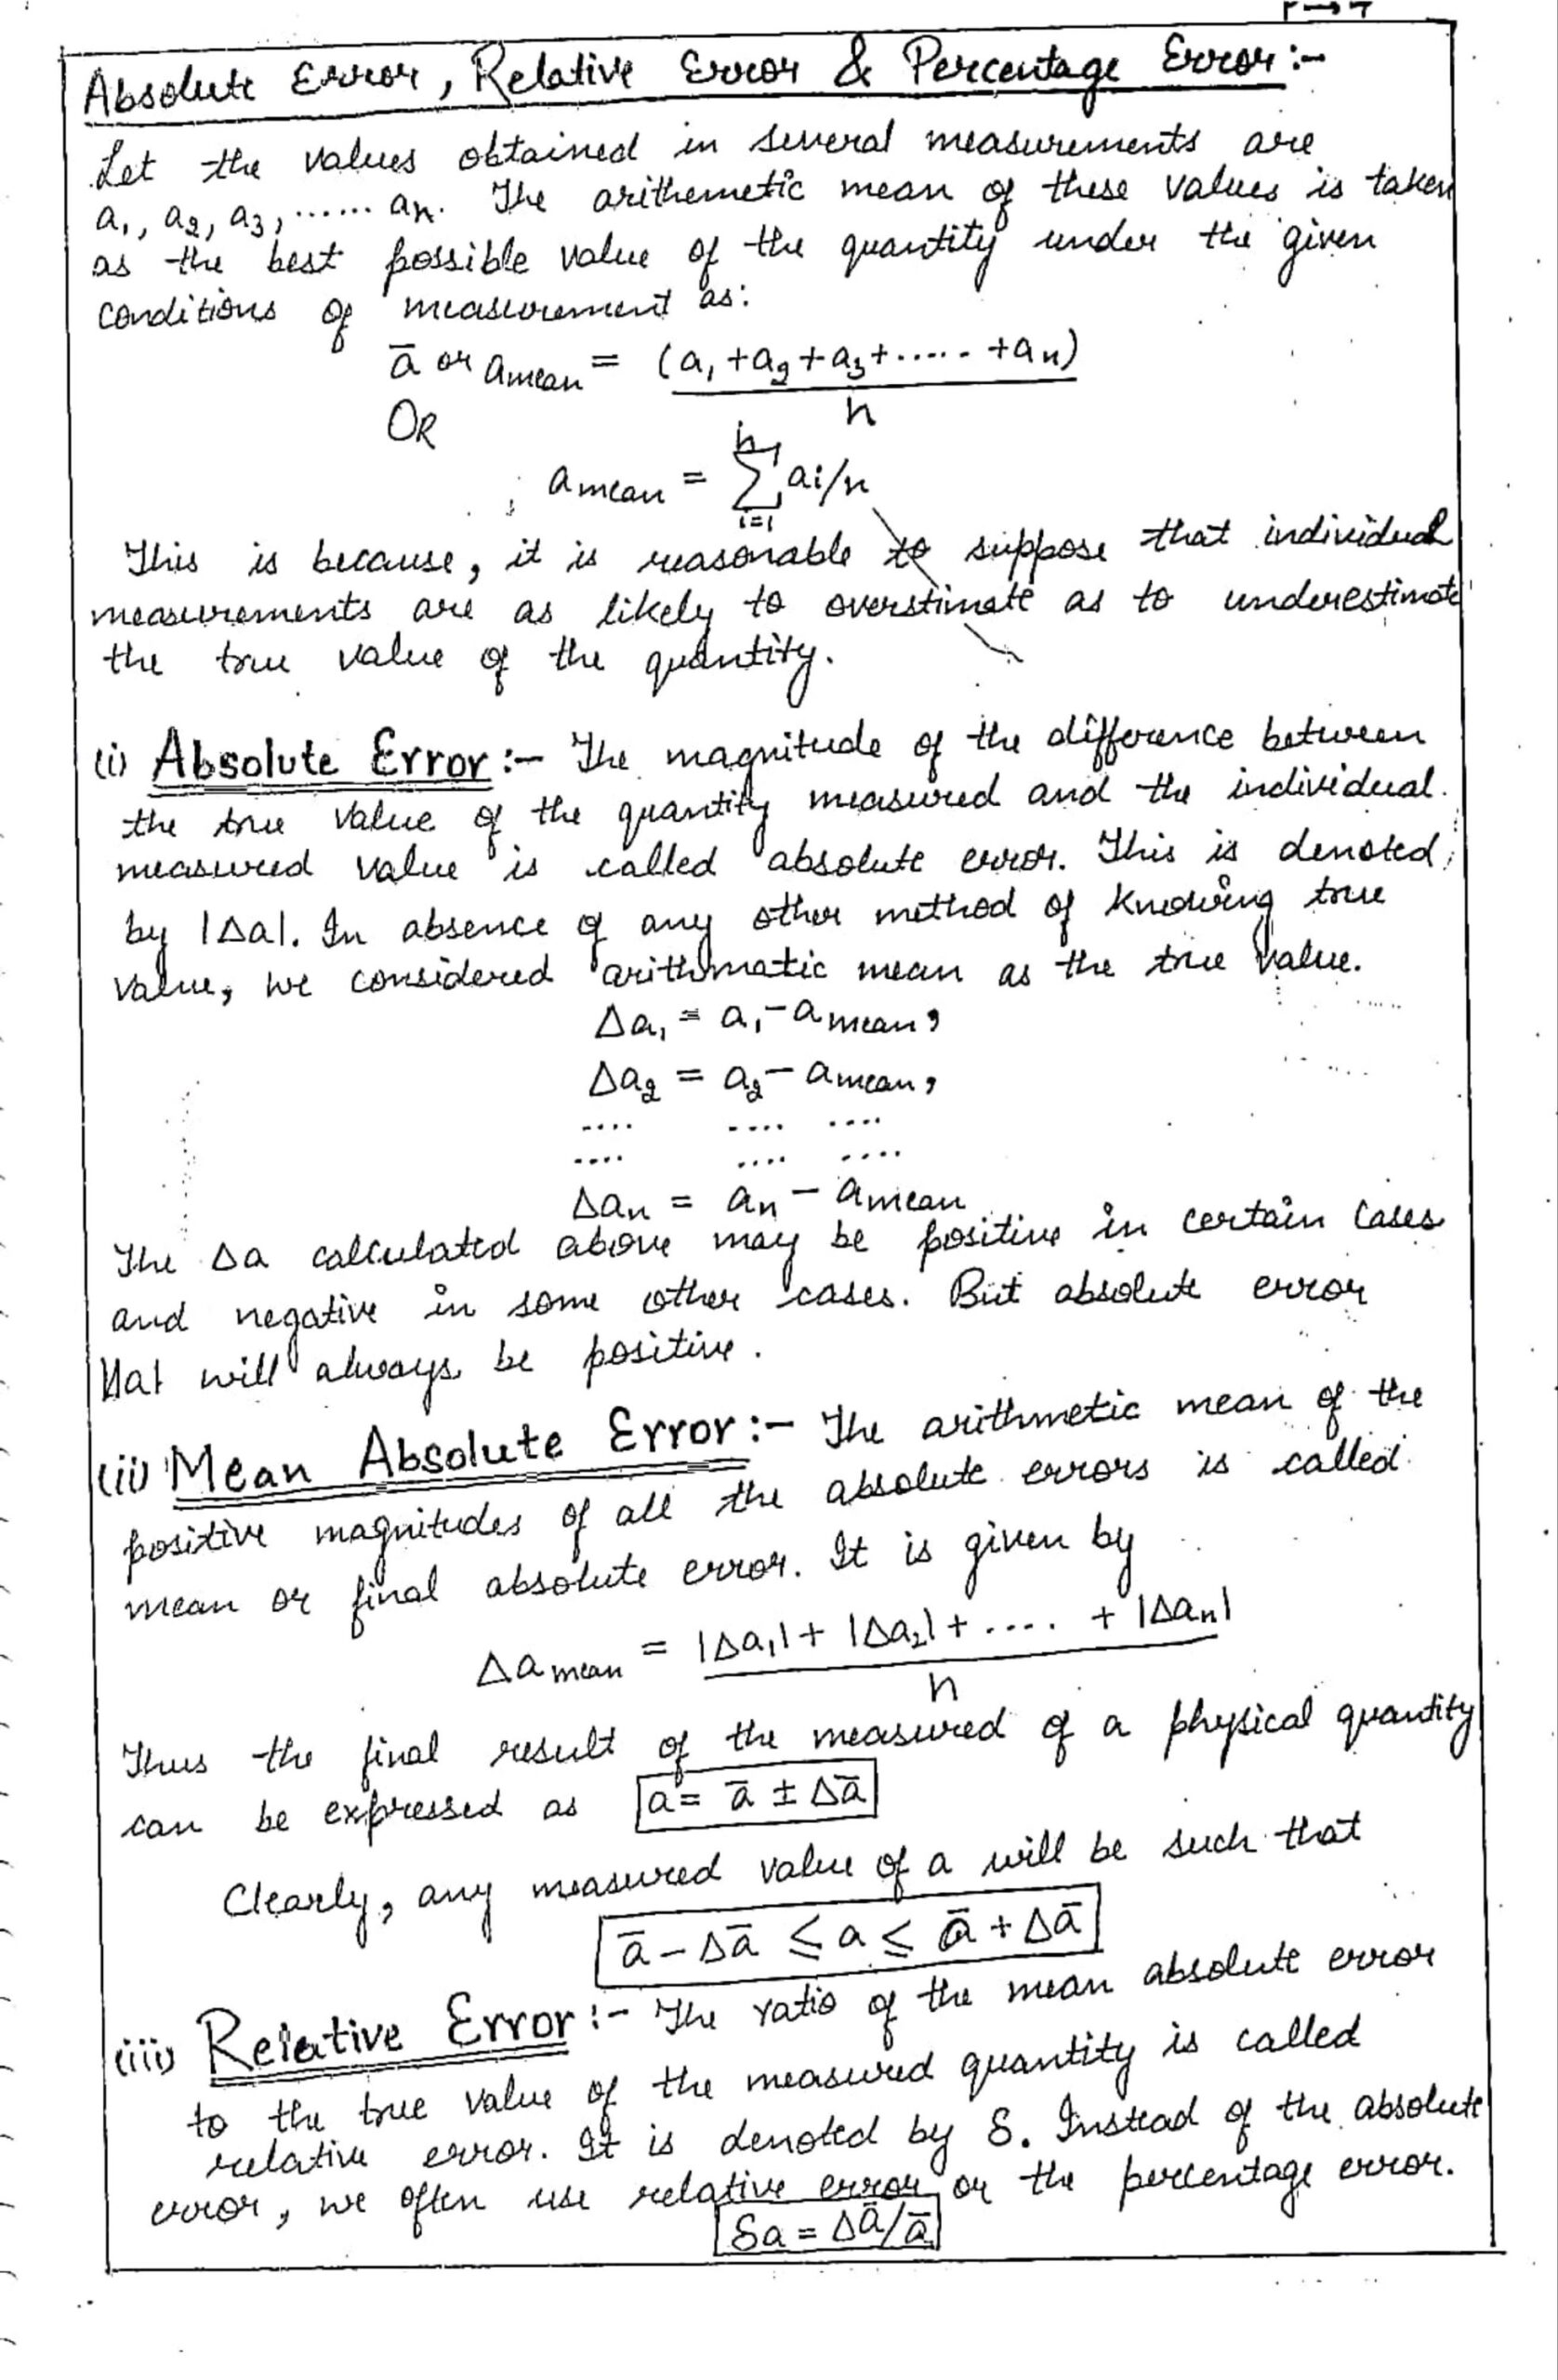 Absolute Error, Relative Error & Percentage Error:-
Let the values obtained in several measurements are
a₁, a₂, a₃, ...... aₙ. The arithemetic mean of these values is taken
as the best possible value of the quantity under the given
conditions of measurement as:
ā or a mean = (a₁ + a₂ + a₃ + ...... + aₙ)
n
OR
a mean = n∑i=1 ai/n
This is because, it is reasonable to suppose that individual
measurements are as likely to overstimate as to underestimate
the true value of the quantity.
(i) Absolute Error:- The magnitude of the difference between
the true value of the quantity measured and the individual
measured value is called absolute error. This is denoted
by |Δa|. In absence of any other method of knowing true
value, we considered arithmatic mean as the true value.
Δa₁ = a₁ - a mean,
Δa₂ = a₂ - a mean,
.... .... ....
.... .... ....
Δaₙ = aₙ - a mean
The Δa calculated above may be positive in certain cases
and negative in some other cases. But absolute error
|Δa| will always be positive.
(ii) Mean Absolute Error:- The arithmetic mean of the
positive magnitudes of all the absolute errors is called
mean or final absolute error. It is given by
Δa mean = |Δa₁| + |Δa₂| + .... + |Δaₙ|
n
Thus the final result of the measured of a physical quantity
can be expressed as a = ā ± Δā
Clearly, any measured value of a will be such that
ā - Δā ≤ a ≤ ā + Δā
(iii) Relative Error:- The ratio of the mean absolute error
to the true value of the measured quantity is called
relative error. It is denoted by δ. Instead of the absolute
error, we often use relative error or the percentage error.
δa = Δā/ā